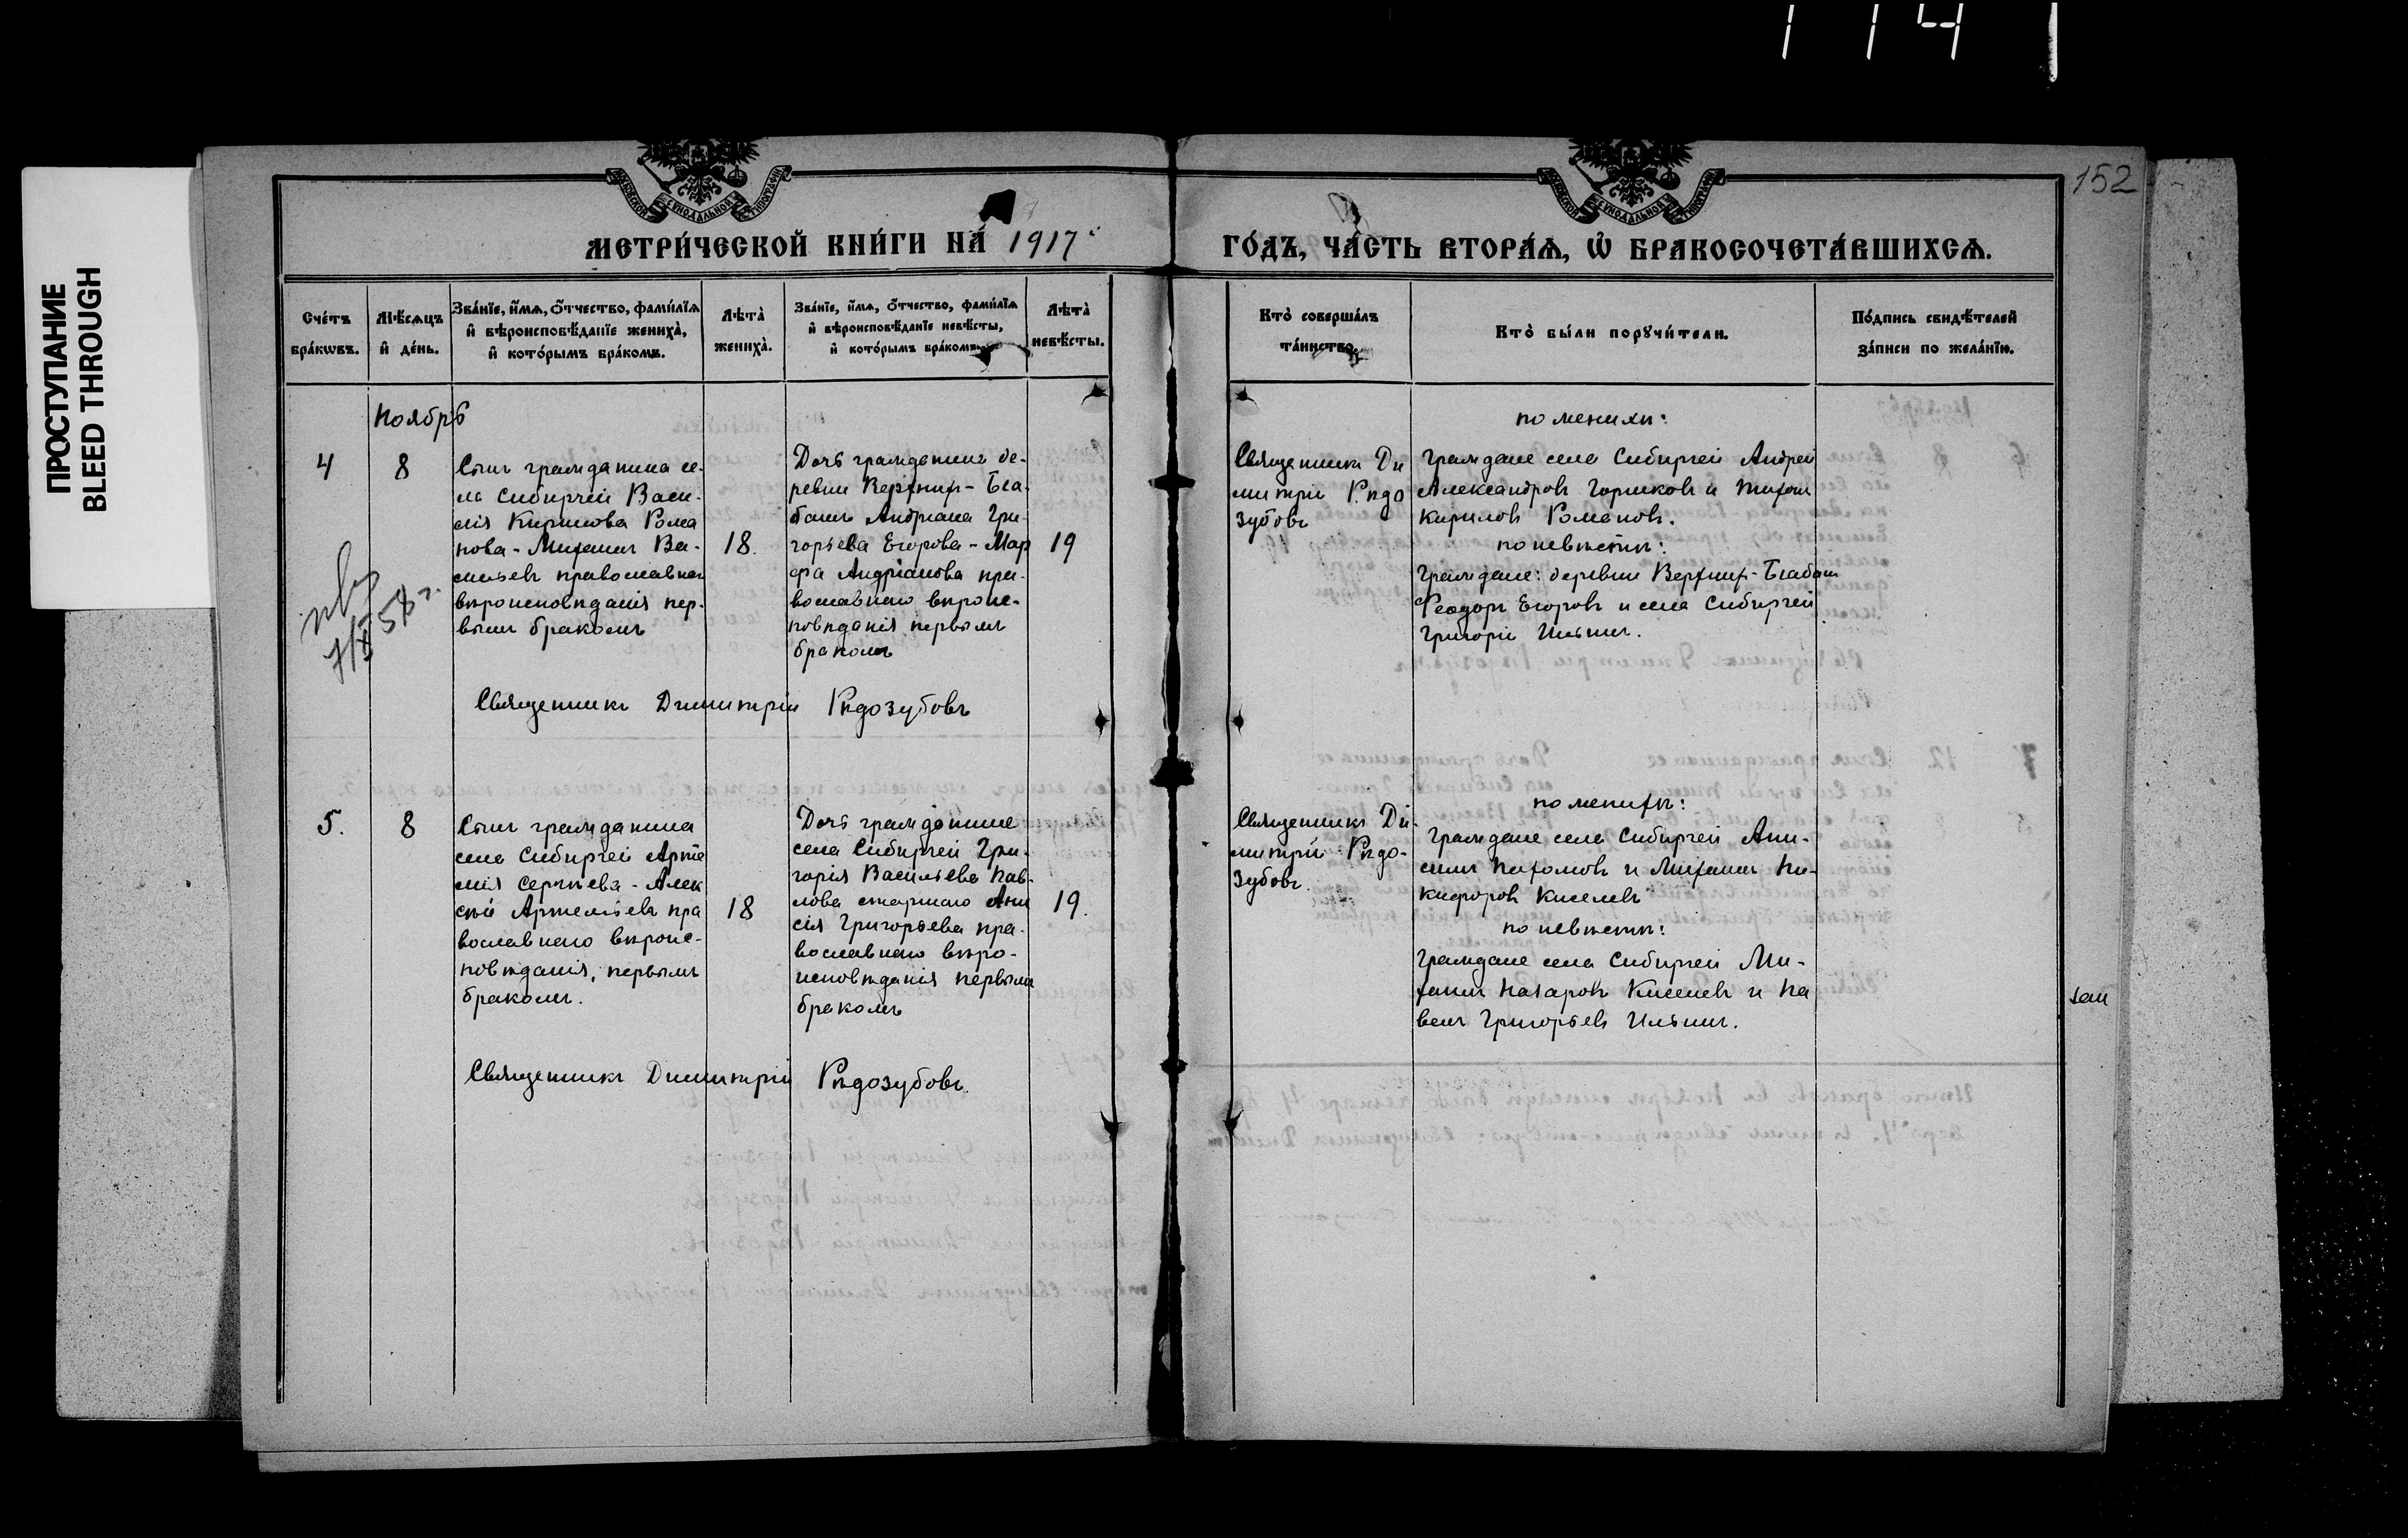 1 1 4 1
ПРОСТУПАНИЕ
BLEED THROUGH
152
МОСКОВСКОЙ СѴНОДАЛЬНОЙ ТИПОГРАФІИ
МОСКОВСКОЙ СѴНОДАЛЬНОЙ ТИПОГРАФІИ
МЕТРИ́ЧЕСКОЙ КНИ́ГИ НА́ 1917
ГО́ДЪ, ЧА́СТЬ ВТОРА́Ѧ, Ѽ БРАКОСОЧЕТА́ВШИХСѦ.
Сче́тъ
бра́кѡвъ.
Мѣ́сѧцъ
и҆ де́нь.
Зва́нїе, и҆́мѧ, о҆́тчество, фами́лїѧ
и҆ вѣроисповѣ́данїе жениха̀,
и҆ кото́рымъ бра́комъ.
Лѣта̀
жениха̀.
Зва́нїе, и҆́мѧ, о҆́тчество, фами́лїѧ
и҆ вѣроисповѣ́данїе невѣ́сты,
и҆ кото́рымъ бра́комъ.
Лѣта̀
невѣ́сты.
Кто̀ соверша́лъ
та́инство.
Кто̀ бы́ли порꙋчи́тели.
По́дпись свидѣ́телей
за́писи по жела́нїю.
Ноябрь
4
8
Сынъ гражданина се-
ла Сибирчей Васи-
лія Кирилова Рома
нова - Михаилъ Ва-
сильевъ православнаго
вѣроисповѣданія пер-
вымъ бракомъ
18.
Дочь гражданина де-
ревни Верхнихъ-Ела-
башъ Андриана Гри-
горьева Егорова - Мар
фа Андріанова пра-
вославнаго вѣроис-
повѣданія первымъ
бракомъ
19
Священникъ Ди
митрій Рѣдо
зубовъ
по женихѣ:
Граждане села Сибирчей Андрей
Александровъ Горшковъ и Тихон
Кириловъ Романовъ.
по невѣстѣ:
Граждане: деревни Верхнихъ-Елабаш
Феодоръ Егоровъ и села Сибирчей
Григорій Ильинъ.
7/X 58 г.
Священникъ Димитрій Рѣдозубовъ
5.
8
Сынъ гражданина
села Сибирчей Арте
мія Сергѣева - Алек
сѣй Артемьевъ пра
вославнаго вѣроис-
повѣданія, первымъ
бракомъ.
18
Дочь гражданина
села Сибирчей Гри-
горія Васильева Пав-
лова старшаго Ани
сія Григорьева пра-
вославнаго вѣро-
исповѣданія первымъ
бракомъ
19.
Священникъ Ди-
митрій Рѣдо-
зубовъ.
по женихѣ:
Граждане села Сибирчей Ани-
симъ Пахомовъ и Михаилъ Ни-
кифоровъ Киселевъ
по невѣстѣ:
Граждане села Сибирчей Ми-
хаилъ Назаровъ Киселевъ и Па
велъ Григорьевъ Ильинъ.
Священникъ Димитрій Рѣдозубовъ.